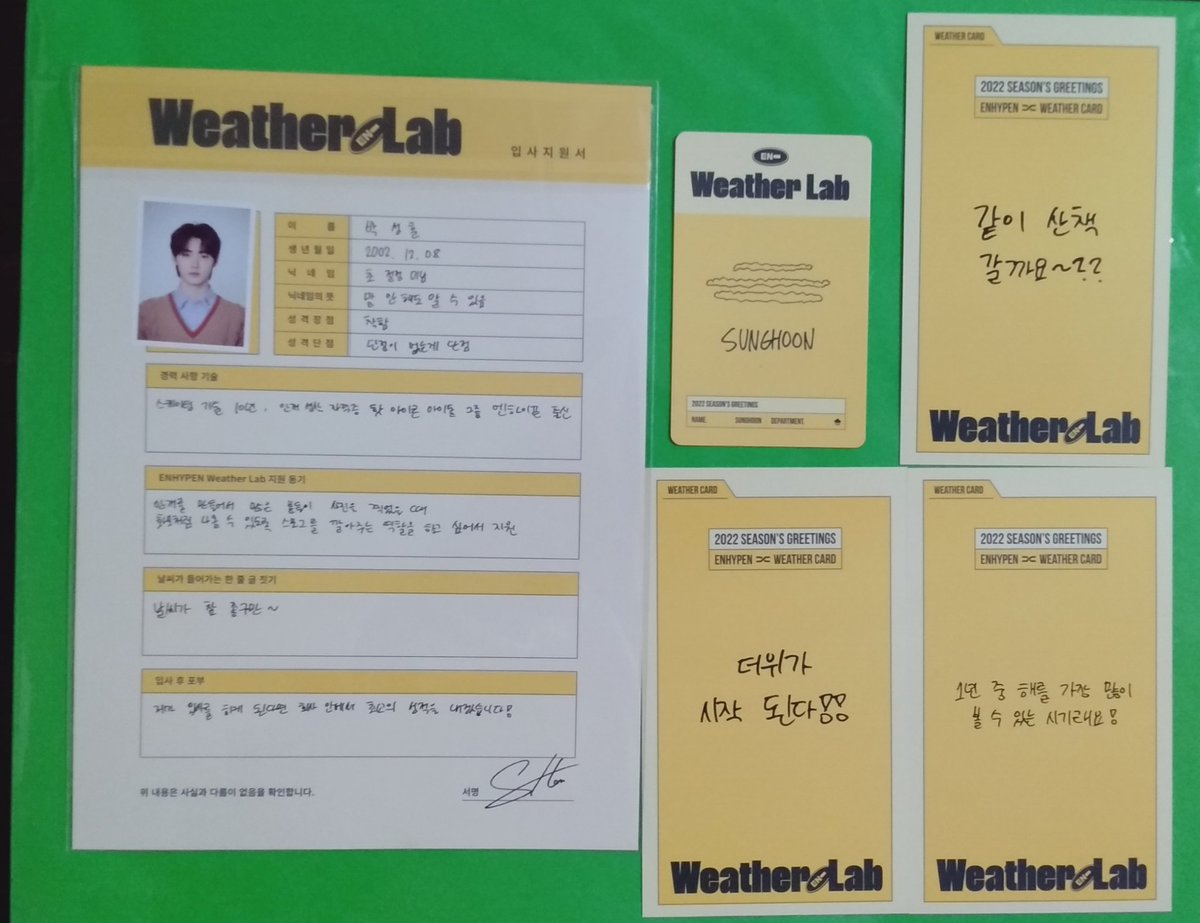 Weather Lab
EN-
입사지원서
이름 박성훈
생년월일 2002. 12. 08
닉네임 초 절정 미남
닉네임의 뜻 말 안 해도 알 수 있음
성격장점 착함
성격단점 단점이 없는게 단점
경력 사항 기술
스케이팅 기술 10년, 안전 자격증 핫 아이콘 아이돌 그룹 엔하이픈 출신
ENHYPEN Weather Lab 지원 동기
안개를 만들어서 많은 분들이 사진을 찍었을 때
화보처럼 나올 수 있도록 스모그를 깔아주는 역할을 하고 싶어서 지원
날씨가 들어가는 한 줄 글 짓기
날씨가 참 좋구만 ~
입사 후 포부
제가 입사를 하게 된다면 회사 안에서 최고의 성적을 내겠습니다!
위 내용은 사실과 다름이 없음을 확인합니다.
서명
EN-
Weather Lab
SUNGHOON
2022 SEASON'S GREETINGS
NAME. SUNGHOON DEPARTMENT.
WEATHER CARD
2022 SEASON'S GREETINGS
ENHYPEN WEATHER CARD
같이 산책
갈까요~??
Weather Lab
EN-
WEATHER CARD
2022 SEASON'S GREETINGS
ENHYPEN WEATHER CARD
더위가
시작 된다!!
Weather Lab
EN-
WEATHER CARD
2022 SEASON'S GREETINGS
ENHYPEN WEATHER CARD
1년 중 해를 가장 많이
볼 수 있는 시기래요!
Weather Lab
EN-